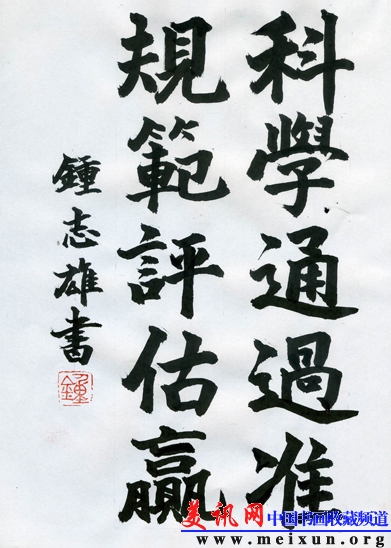 科學通過准
規範評估贏
鍾志雄書
鍾
美讯网
中国书画收藏频道
www.meixun.org